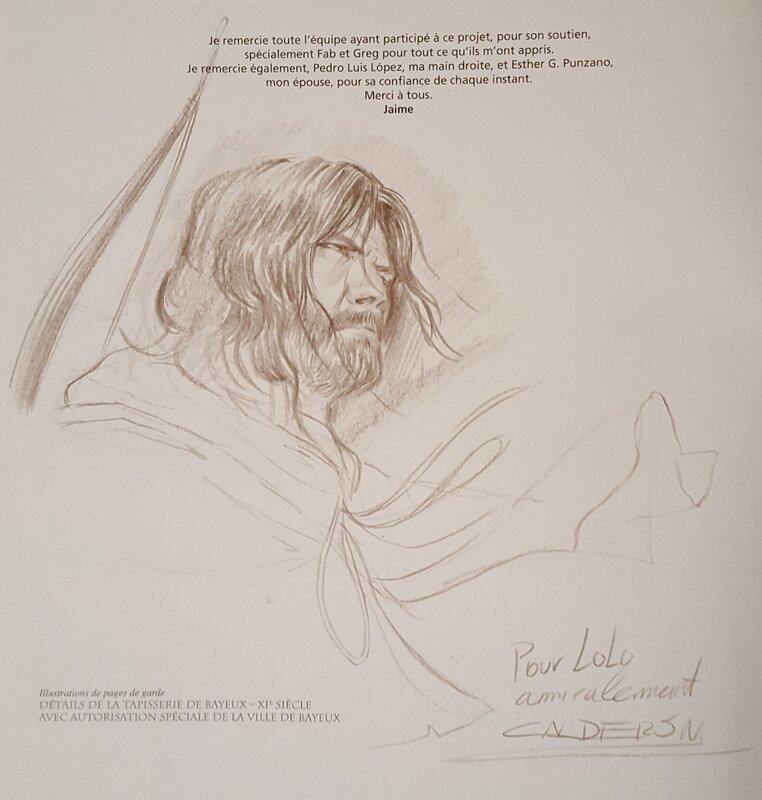 Je remercie toute l'équipe ayant participé à ce projet, pour son soutien,
spécialement Fab et Greg pour tout ce qu'ils m'ont appris.
Je remercie également, Pedro Luis López, ma main droite, et Esther G. Punzano,
mon épouse, pour sa confiance de chaque instant.
Merci à tous.
Jaime
Pour LoLo
amicalement
CALDERÓN
Illustrations de pages de garde
DÉTAILS DE LA TAPISSERIE DE BAYEUX – XIᴱ SIÈCLE
AVEC AUTORISATION SPÉCIALE DE LA VILLE DE BAYEUX